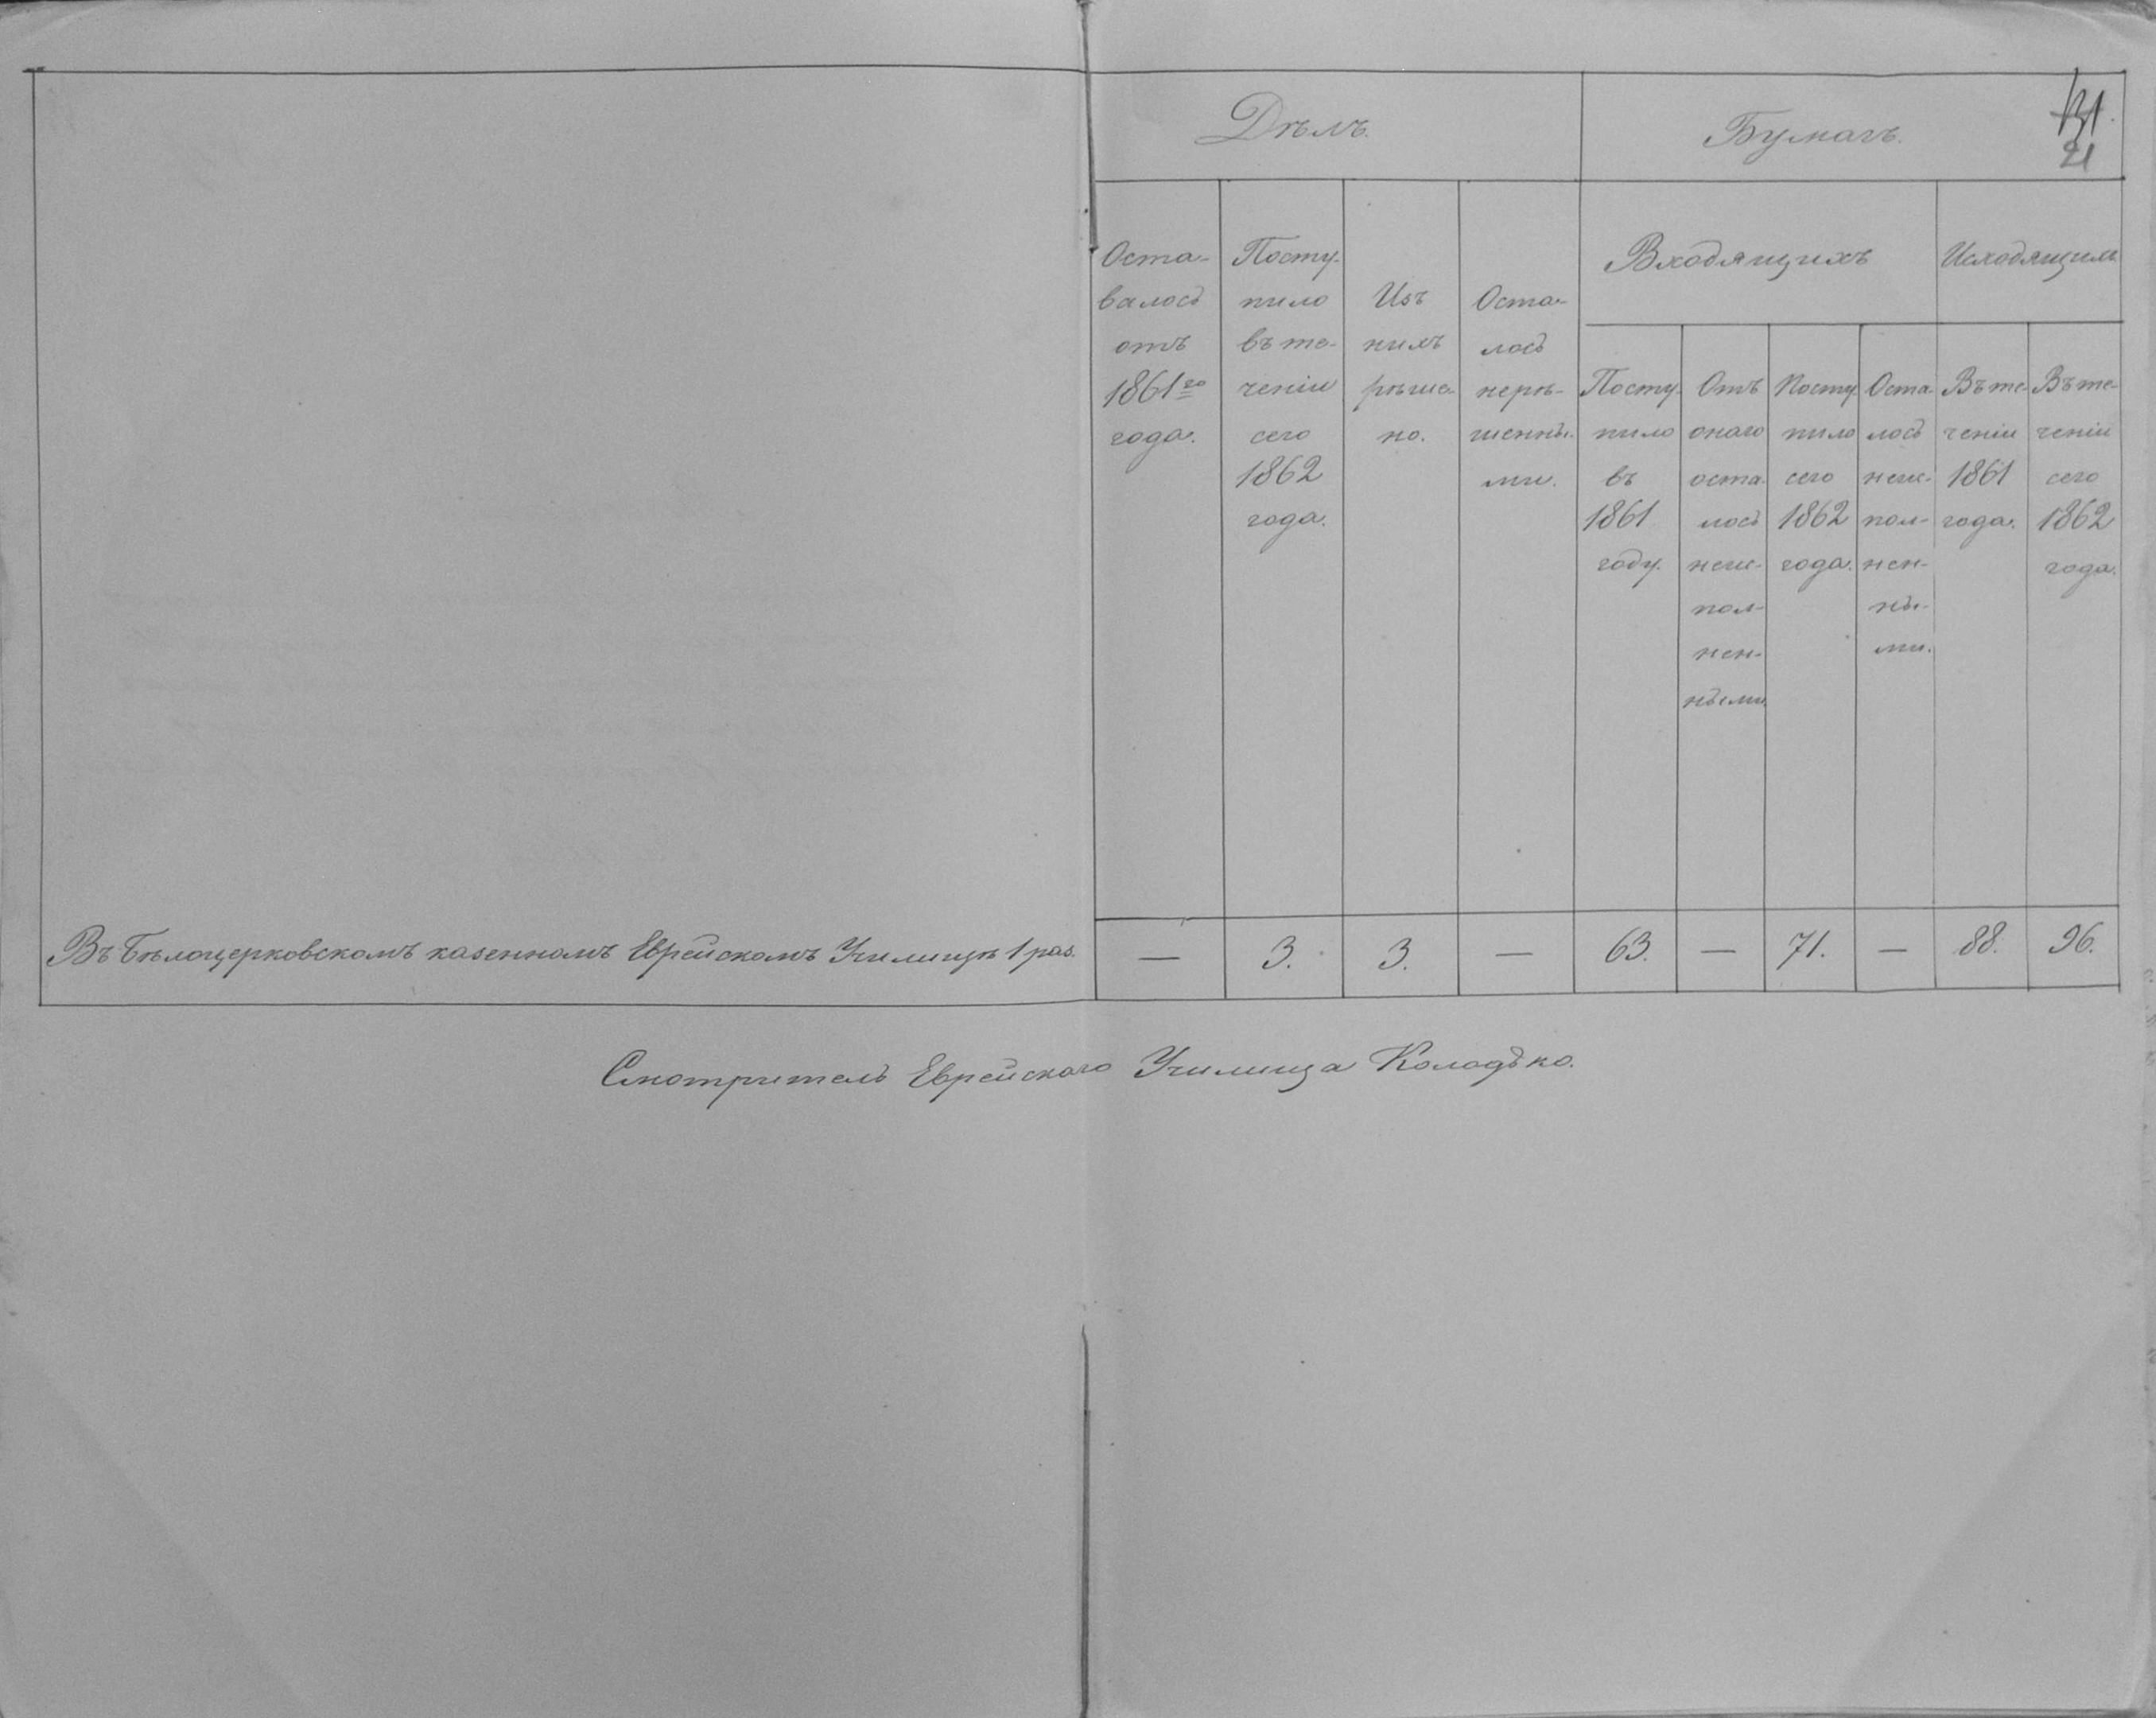 Дѣлъ.
Бумагъ.
131.
21
Входящихъ
Исходящихъ
Оста-
валось
отъ
1861го
года.
Посту-
пило
въ те-
ченіи
сего
1862
года.
Изъ
нихъ
рѣше-
но.
Оста-
лось
нерѣ-
шенны-
ми.
Посту-
пило
въ
1861
году.
Отъ
онаго
оста-
лось
неис-
пол-
нен-
ными.
Посту-
пило
сего
1862
года.
Оста-
лось
неис-
пол-
нен-
ны-
ми.
Въ те-
ченіи
1861
года.
Въ те-
ченіи
сего
1862
года.
Въ Бѣлоцерковскомъ казенномъ Еврейскомъ Училищѣ 1 раз. — 3. 3. — 63. — 71. — 88. 96.
Смотритель Еврейскаго Училища Колодько.